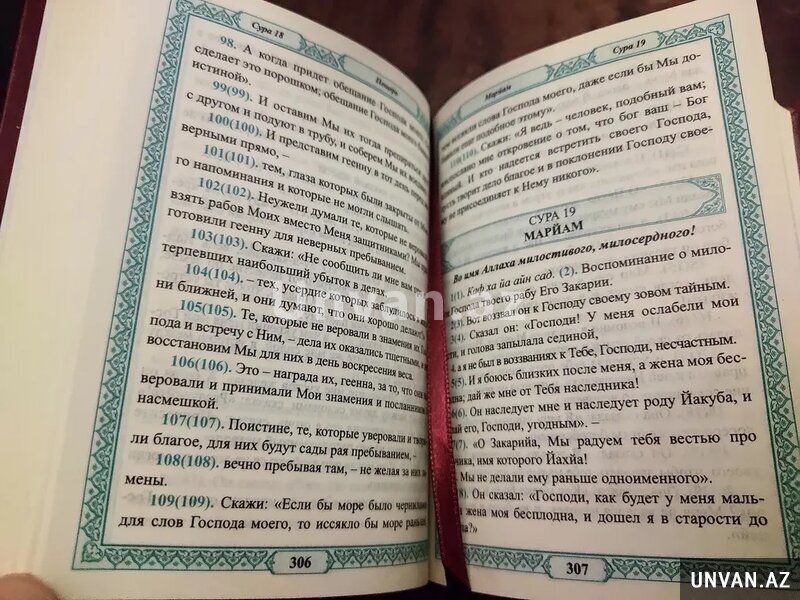 Сура 18
Пещера
98. А когда придет обещание Господа
сделает это порошком; обещание Господа моего
истиной».
99(99). И оставим Мы их тогда препираться
с другом и подуют в трубу, и соберем Мы их
100(100). И представим геенну в тот день
верными прямо, –
101(101). тем, глаза которых были закрыты от
го напоминания и которые не могли слышать.
102(102). Неужели думали те, которые не
взять рабов Моих вместо Меня защитниками? Мы
готовили геенну для неверных пребыванием.
103(103). Скажи: «Не сообщить ли мне вам
терпевших наибольший убыток в делах,
104(104). – тех, усердие которых заблудилось в
ни ближней, и они думают, что они хорошо делают?
105(105). Те, которые не веровали в знамения их
пода и встречу с Ним, – дела их оказались тщетными, и
восстановим Мы для них в день воскресения веса.
106(106). Это – награда их, геенна, за то, что они
веровали и принимали Мои знамения и посланников
насмешкой.
107(107). Поистине, те, которые уверовали и
ли благое, для них будут сады рая пребыванием, –
108(108). вечно пребывая там, – не желая за них
мены.
109(109). Скажи: «Если бы море было чернилами
для слов Господа моего, то иссякло бы море раньше
306
Марйам
Сура 19
слова Господа моего, даже если бы Мы до-
подобное этому».
(110). Скажи: «Я ведь – человек, подобный вам;
мне откровение о том, что бог ваш – Бог
И кто надеется встретить своего Господа,
творит дело благое и в поклонении Господу свое-
не присоединяет к Нему никого».
СУРА 19
МАРЙАМ
Во имя Аллаха милостивого, милосердного!
1(1). Каф ха йа айн сад. (2). Воспоминание о мило-
Господа твоего рабу Его Закарии.
2(3). Вот воззвал он к Господу своему зовом тайным.
3(4). Сказал он: «Господи! У меня ослабели мои
и голова запылала сединой,
4. а я не был в воззваниях к Тебе, Господи, несчастным.
5(5). И я боюсь близких после меня, а жена моя бес-
дай же мне от Тебя наследника!
6(6). Он наследует мне и наследует роду Йакуба, и
его, Господи, угодным». –
7(7). «О Закарийа, Мы радуем тебя вестью про
имя которого Йахйа!
Мы не делали ему раньше одноименного».
8). Он сказал: «Господи, как будет у меня маль-
жена моя бесплодна, и дошел я в старости до
307
UNVAN.AZ